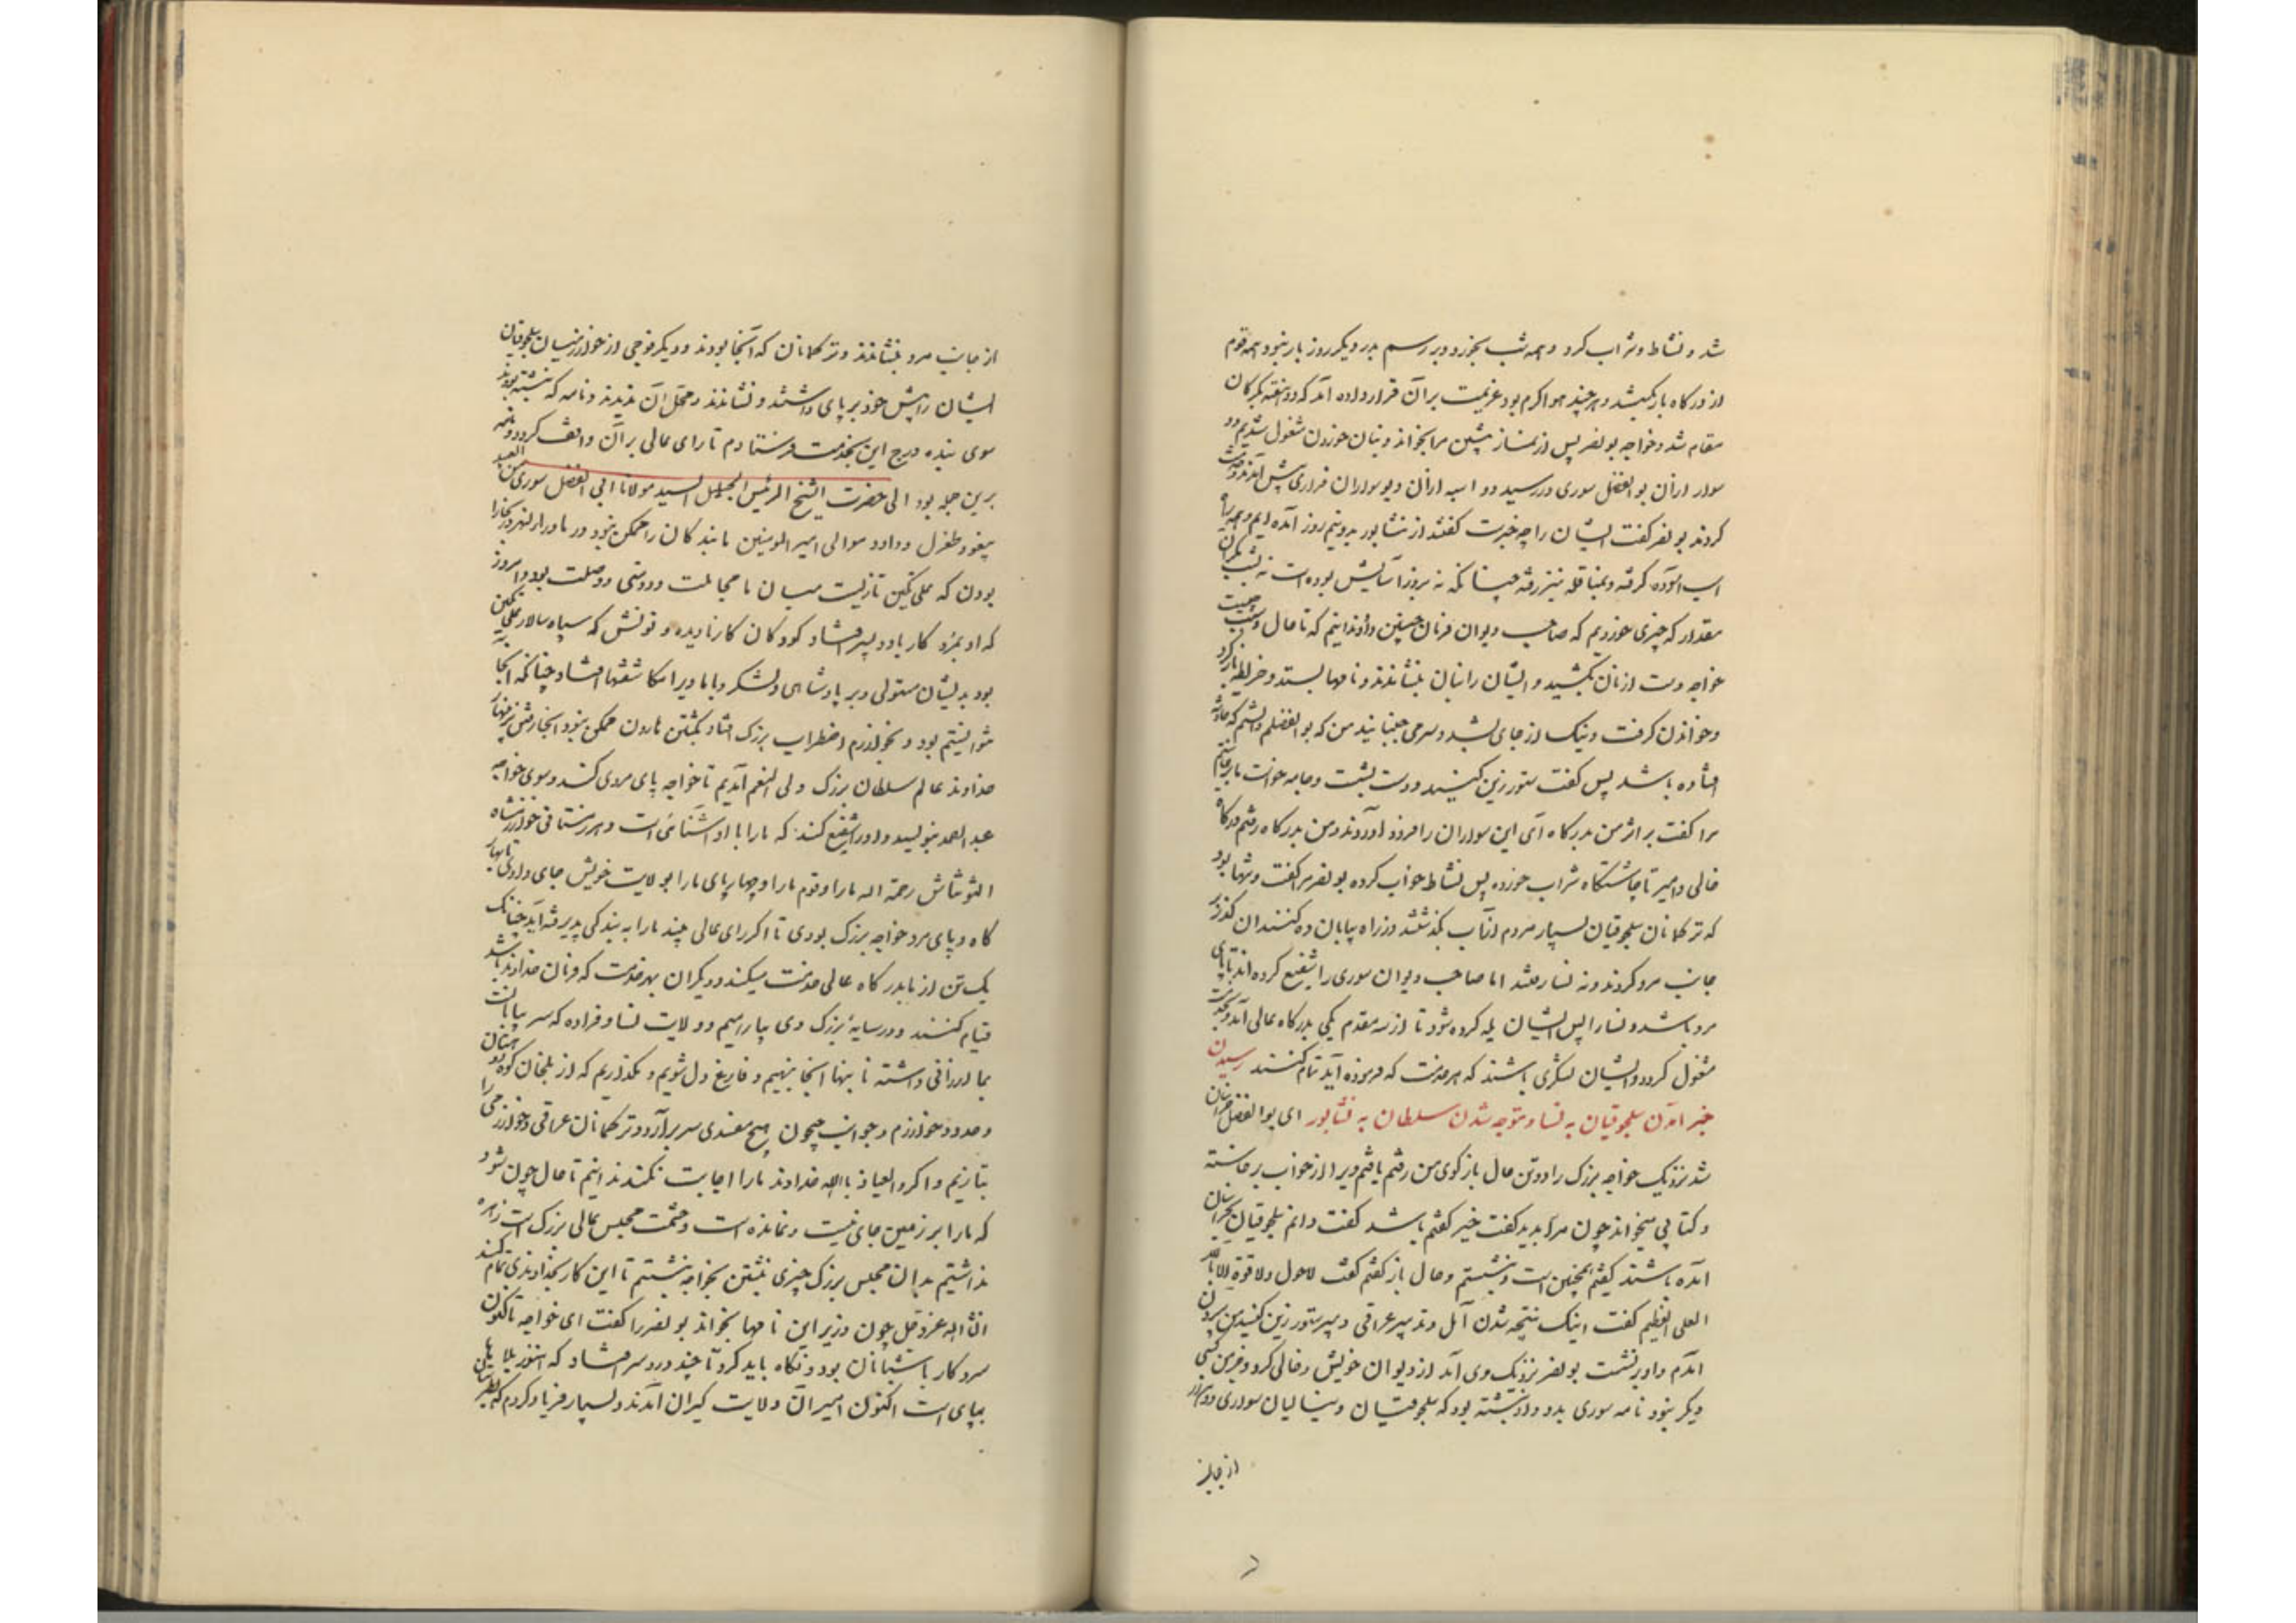 شد و نشاط و شراب کرد و همه شب بخورد و بر رسم پدر دیگر روز بار نبود و همه قوم
از درگاه بازگشتند و هر چند هوا گرم بود عزیمت بر آن قرار داده آمد که دو هفته بگرگان
مقام شد و خواجه بونصر پس از نماز پیشین مرا بخواند و بنان خوردن مشغول شدیم دو
سوار از آن بوالفضل سوری در رسید دو اسبه از آن دیو سواران فراری پیش آمدند و خدمت
کردند بونصر گفت ایشان را چه خبرست گفتند از نشابور بدو نیم روز آمده ایم و همه راه
اسب آسوده گرفته و بمناقله تیز رفته چنانکه نه بروز آسایش بوده است نه بشب مگر آن
مقدار که چیزی خوردیم که صاحب دیوان فرمان چنین داد و ندانیم که تا حال و سبب چیست
خواجه دست از نان بکشید و ایشان را بنان بنشاندند و نامها بستد و خریطه باز کرد
و خواندن گرفت و نیک از جای بشد و سر می جنبانید من که بوالفضلم دانستم که حادثه
افتاده باشد پس گفت ستور زین کنید و دست بشست و جامه خواست ما برخاستیم
مرا گفت بر اثر من بدرگاه آی این سواران را فرود آوردند و من بدرگاه رفتم درگاه
خالی و امیر تا چاشتگاه شراب خورده پس نشاط خواب کرده بونصر مرا گفت و تنها بود
که ترکمانان سلجوقیان بسیار مردم از آب بگذشتند و از راه بیابان ده کنندان گذر بر
جانب مرو کردند و نه نسا رفتند اما صاحب دیوان سوری را شفیع کرده اند تا پای
مرد باشد و نسا را پس ایشان یله کرده شود تا از سه مقدم یکی بدرگاه عالی آید و بخدمت
مشغول گردد و ایشان لشکری باشند که هر خدمت که فرموده آید تمام کنند رسیدن
خبر آمدن سلجوقیان به نسا و متوجه شدن سلطان به نشابور ای بوالفضل خراسان
شد نزدیک خواجه بزرگ رو و این حال باز گوی من رفتم یافتم ویرا از خواب برخاسته
و کتابی میخواند چون مرا بدید گفت خیر گفتم باشد گفت دانم سلجوقیان بخراسان
آمده باشند گفتم همچنین است و نشستم و حال باز گفتم گفت لاحول ولا قوة الا بالله
العلی العظیم گفت اینک نتیجه شدن آمل و تدبیر عراقی دبیر ستور زین کنید من بیرون
آمدم و او برنشست بونصر نزدیک وی آمد از دیوان خویش و خالی کرد و جز من کسی
دیگر نبود نامه سوری بدو داد نبشته بود که سلجوقیان و ینالیان سواری ده هزار
از جانب
از جانب مرو بنشاندند و ترکمانان که آنجا بودند و دیگر فوجی از خوارزمیان سلجوقیان
ایشان را پیش خود بر پای داشتند و نشاندند و محل آن ندیدند و نامه که نبشته بودند
سوی بنده درج این بخدمت فرستادم تا رای عالی بر آن واقف گردد و نامه
برین جمله بود الی حضرت الشیخ الرئیس الجلیل السید مولانا ابی الفضل سوری من العبید
یبغو و طغرل و داود موالی امیر المومنین ما بندگان را ممکن نبود در ماوراء النهر و بخارا
بودن که علی تکین تا زیست میان ما مجاملت و دوستی و وصلت بود و امروز
که او بمرد کار با دو پسر افتاد کودکان کار نادیده و تونش که سپاه سالار علی تکین
بود بدیشان مستولی و بر پادشاهی و لشکر و با ما ویرا مکاشفتها افتاد چنانکه آنجا
نتوانستیم بود و بخوارزم اضطراب بزرگ افتاد بکشتن هارون ممکن نبود آنجا رفتن بزینهار
خداوند عالم سلطان بزرگ ولی النعم آمدیم تا خواجه پای مردی کند و سوی خواجه
عبد الصمد بنویسید و او را شفیع کند که ما را با او آشنائی است و هر زمستانی خوارزمشاه
التونتاش رحمة الله ما را و قوم ما را و چهارپای ما را بولایت خویش جای دادی تا بهار
گاه و پای مرد خواجه بزرگ بودی تا اگر رای عالی بیند ما را به بندگی پذیرفته آید چنانکه
یک تن از ما بدرگاه عالی خدمت میکند و دیگران بهر خدمت که فرمان خداوند باشد
قیام کنند و در سایه بزرگ وی بیارامیم و ولایت نسا و فراوه که سر بیابانست
بما ارزانی داشته تا بنها آنجا بنهیم و فارغ دل شویم و نگذاریم که از بلخان کوه و دهستان
و حدود خوارزم و جوانب جیحون هیچ مفسدی سر برآرد و ترکمانان عراقی و خوارزمی را
بتازیم و اگر و العیاذ بالله خداوند ما را اجابت نکند ندانیم تا حال چون شود
که ما را بر زمین جای نیست و نمانده است و حشمت مجلس عالی بزرگ است زهره
نداشتیم بدان مجلس بزرگ چیزی نبشتن بخواجه نبشتیم تا این کار بخداوندی تمام کند
انشاء الله عز و جل چون وزیر این نامها بخواند بونصر را گفت ای خواجه تا اکنون
سر و کار با شبانان بود و نگاه باید کرد تا چند درد سر افتاد که هنوز بلاها
بپای است اکنون امیران ولایت گیران آمدند و بسیار فریاد کردم که بطبرستان